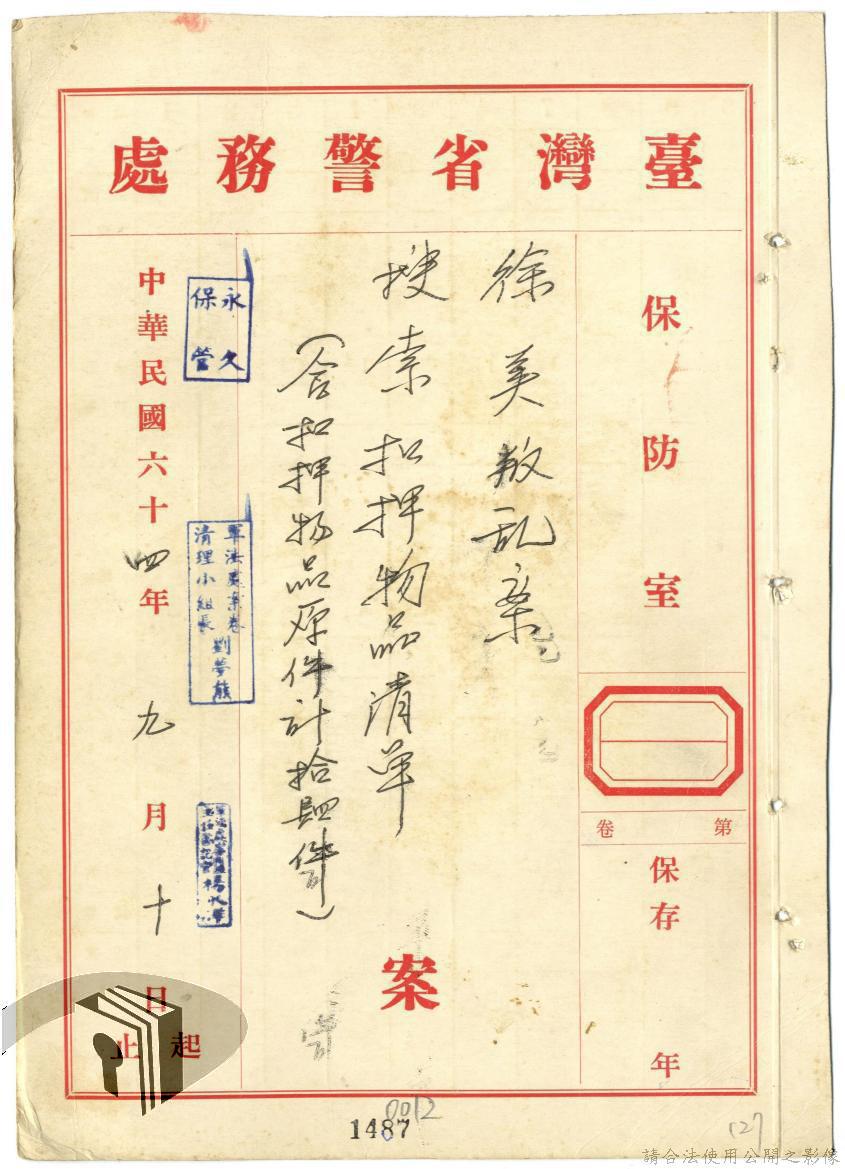 臺灣省警務處
保防室
第 卷
保存 年
徐美叛乱案
搜索扣押物品清单
(含扣押物品原件計拾肆件)
案
永久
保管
軍法處案卷
清理小組長
劉夢熊
中華民國六十四年九月十日
起
止
1487
0012
127
請合法使用公開之影像